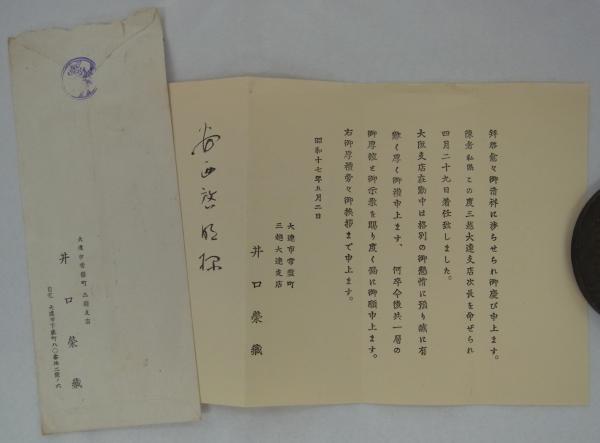 拝啓愈々御清祥に渉らせられ御慶び申上ます。
陳者 私儀 この度三越大連支店次長を命ぜられ
四月二十九日着任致しました。
大阪支店在勤中は格別の御懇情に預り誠に有
難く厚く御禮申上ます、何卒今後共一層の
御厚誼と御示教を賜り度く偏に御願申上ます。
右御厚禮旁々御挨拶まで申上ます。
昭和十七年五月二日
大連市常盤町
三越大連支店
井口榮藏
安西啓明様
大連市常盤町 三越支店
井口榮藏
自宅 大連市